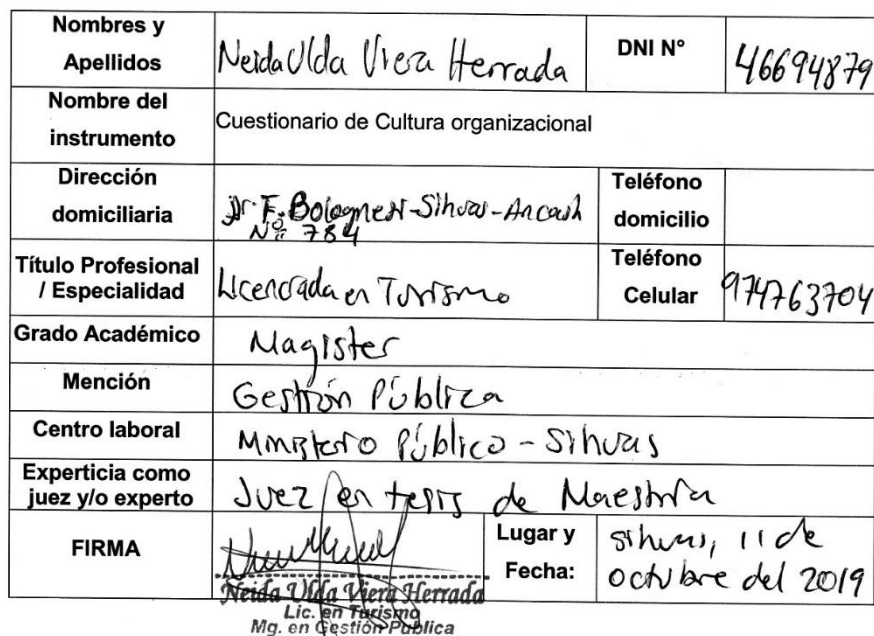 Nombres y Apellidos Neida Ulda Viera Herrada DNI N° 46694879
Nombre del instrumento Cuestionario de Cultura organizacional
Dirección domiciliaria Jr. F. Bolognesi - Sihuas - Ancash
Nº 784
Teléfono domicilio
Título Profesional / Especialidad Licenciada en Turismo Teléfono Celular 974763704
Grado Académico Magister
Mención Gestión Pública
Centro laboral Ministerio Público - Sihuas
Experticia como juez y/o experto Juez en tesis de Maestría
FIRMA
Neida Ulda Viera Herrada
Lic. en Turismo
Mg. en Gestión Pública
Lugar y Fecha: Sihuas, 11 de octubre del 2019